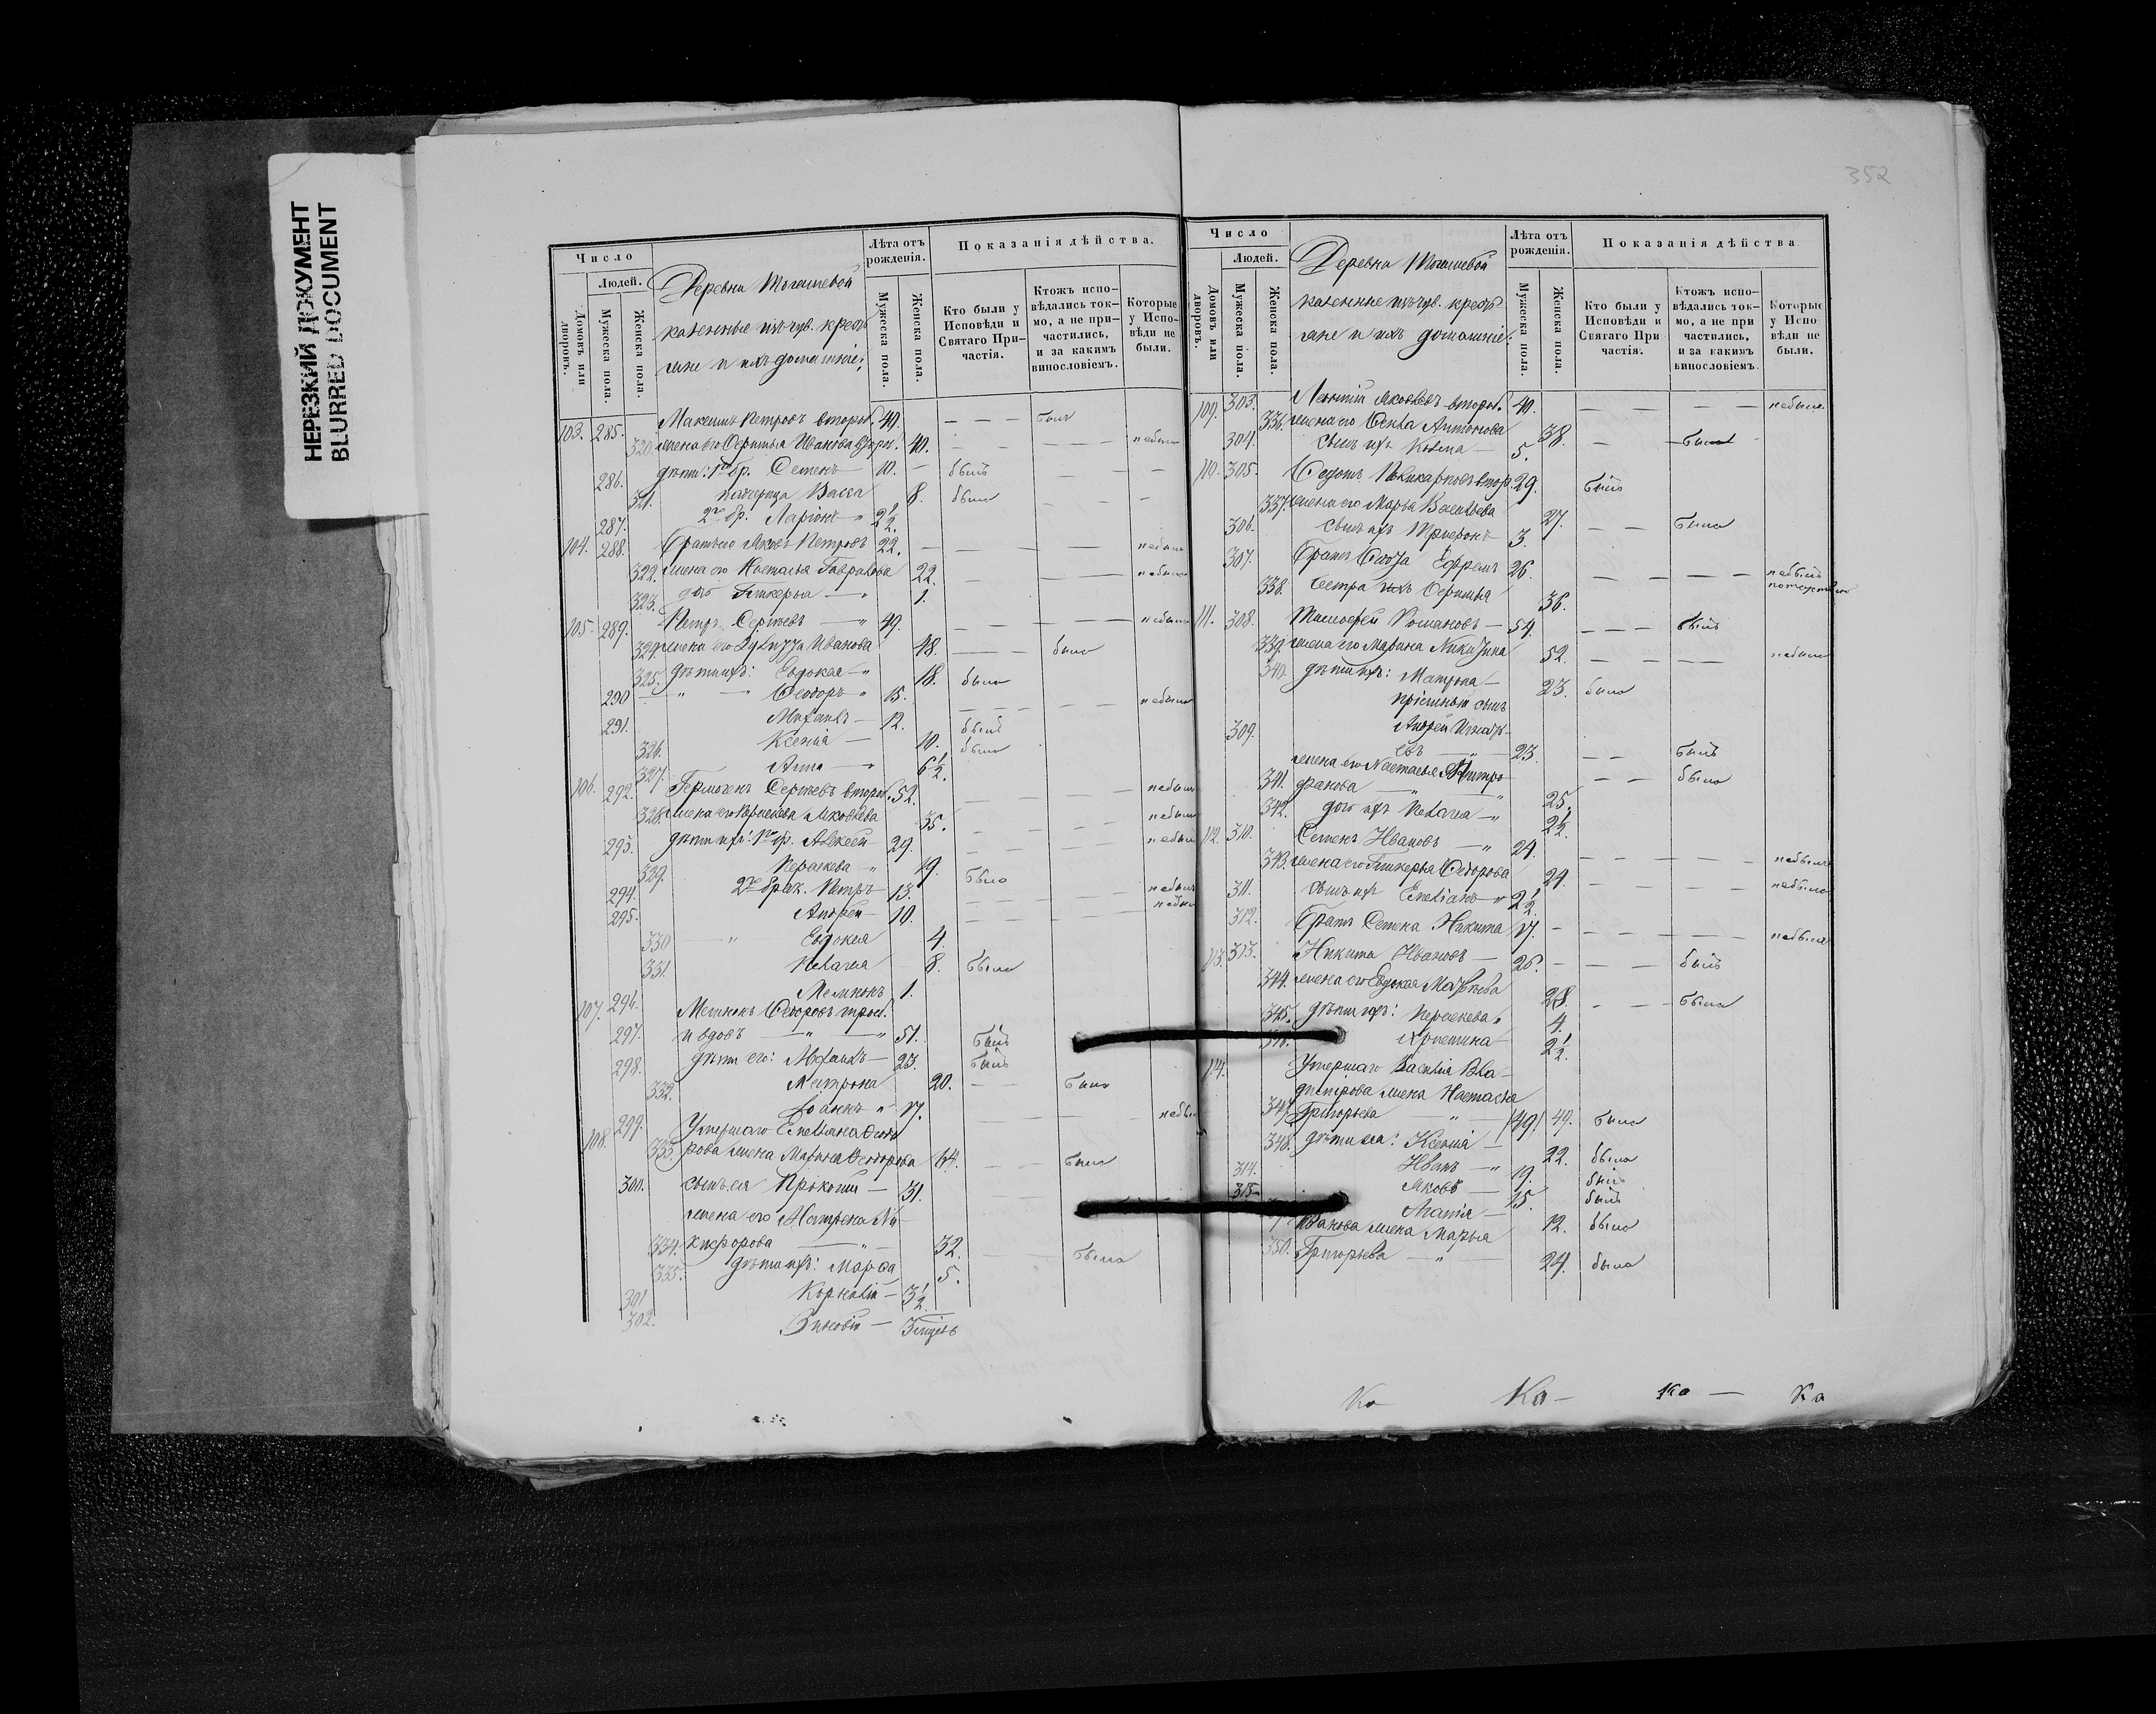 НЕРЕЗКИЙ ДОКУМЕНТ
BLURRED DOCUMENT
Число
Людей.
Домовъ или дворовъ.
Мужеска пола.
Женска пола.
Деревни
казенные крестъ
яне и ихъ домашніе:
Лѣта отъ рожденія.
Мужеска пола.
Женска пола.
Показанія дѣйства.
Кто были у Исповѣди и Святаго При-
частія.
Ктожъ испо-
вѣдались ток-
мо, а не при-
частились,
и за какимъ
винословіемъ.
Которые
у Испо-
вѣди не
были.
103. 285. Петровъ второб. 49. — — былъ
320. жена его Иванова 40. — — —
286. дѣти: 1го бр. Семенъ — 10. — былъ — —
321. Васса 8. была — — —
287. 2го бр. Ларіонъ — 2 1/2.
104. 288. Братъ его Яковъ Петровъ 22. — — — — небылъ
322. жена его Настасья Гаврилова 22. — — — небыла
323. дочь Гликерья — 1.
105. 289. Петръ Сергѣевъ — 49. — — — — небылъ
324. жена его Иванова 48. — — была
325. дѣти ихъ: Евдокея — 18. была
290 Ѳеодоръ 15. — — — — небылъ
291. Михаилъ — 12. былъ
326. Ксенія — 10. была
327. Анна — 6 1/2.
106. 292. Гермогенъ Сергѣевъ второб. 52. — — — небылъ
328. жена его Яковлева 35. — — — небыла
293. дѣти ихъ: 1го бр. Алексѣй 29. — — — небылъ
329. Параскева 19. была
294. 2го брак. Петръ — 13. — — — — небылъ
295. Андрей — 10. — — — — небылъ
330 Евдокея 4.
331. Пелагея 8. была
296. 1.
107. Ѳедоровъ
297. и вдовъ — 51. былъ
298. дѣти его: Михаилъ — 23. былъ
332. Матрона 20. — — была
299. Іоаннъ 17. — — — небылъ
108. Умершаго Емельяна Ѳеодо
333. рова жена Марина Ѳеодорова 64. — — была
300. сынъ ея Прокопій — 31. — —
жена его Матрена Ни-
334. кифорова — 32. — — была
335. дѣти ихъ: Марѳа 5.
301 Корнилій — 3 1/2.
302. Зиновій — 3 мѣсяц
352
Число
Людей.
Домовъ или дворовъ.
Мужеска пола.
Женска пола.
Деревни
казенные крестъ
яне и ихъ домашніе:
Лѣта отъ рожденія.
Мужеска пола.
Женска пола.
Показанія дѣйства
Кто были у
Исповѣди и
Святаго При
частія.
Ктожъ испо-
вѣдались ток-
мо, а не при
частились,
и за какимъ
винословіемъ.
Которые
у Испо
вѣди не
были.
109. 303. Леонтій Яковлевъ второб. 40. — — — — небылъ
336. жена его Ѳекла Антонова 38. — — была
304. сынъ ихъ Козьма — 5.
110. 305. Ѳедотъ Поликарповъ втор. 29. былъ
337. жена его Марья Васильева 27. — — была
306. сынъ ихъ Трифонъ 3.
307. Братъ Ѳедота Ефремъ 26. — — — — небылъ
338. сестра ихъ 36.
111. 308. Тимофей Романовъ — 54. — — — былъ
339. жена его Марина Никитина 52. — — — — небыла
340. дѣти ихъ: Матрона — 23. была
пріемный сынъ
309. Андрей Игнать-
евъ — 23. — — былъ
жена его Настасья Митро
341. фанова — 25. — — была
342. дочь ихъ Пелагея — 2 1/2.
112. 310. Семенъ Ивановъ — 24. — — — — небылъ
343. жена его Гликерья Ѳедорова 24. — — — — небыла
311. сынъ ихъ Емеліанъ 2 1/2
312. Братъ Семена Никита 17. — — — — — небылъ
113. 313. Никита Ивановъ — 26. — — — былъ
344. жена его Евдокея Матвѣева 28. — — — была
345. дѣти ихъ: Параскева 4.
346. Христина 2 1/2.
114. Умершаго Василія Вла-
димірова жена Настасья
347. Григорьева (49) 49. была
348. дѣти ея: Ксенія — 22. была
314. Иванъ — 19. былъ
315. Яковъ — 15. былъ
— 12. была
Иванова жена Марья
350. Григорьева — 24. была
Ка Ка — Ка — Ка